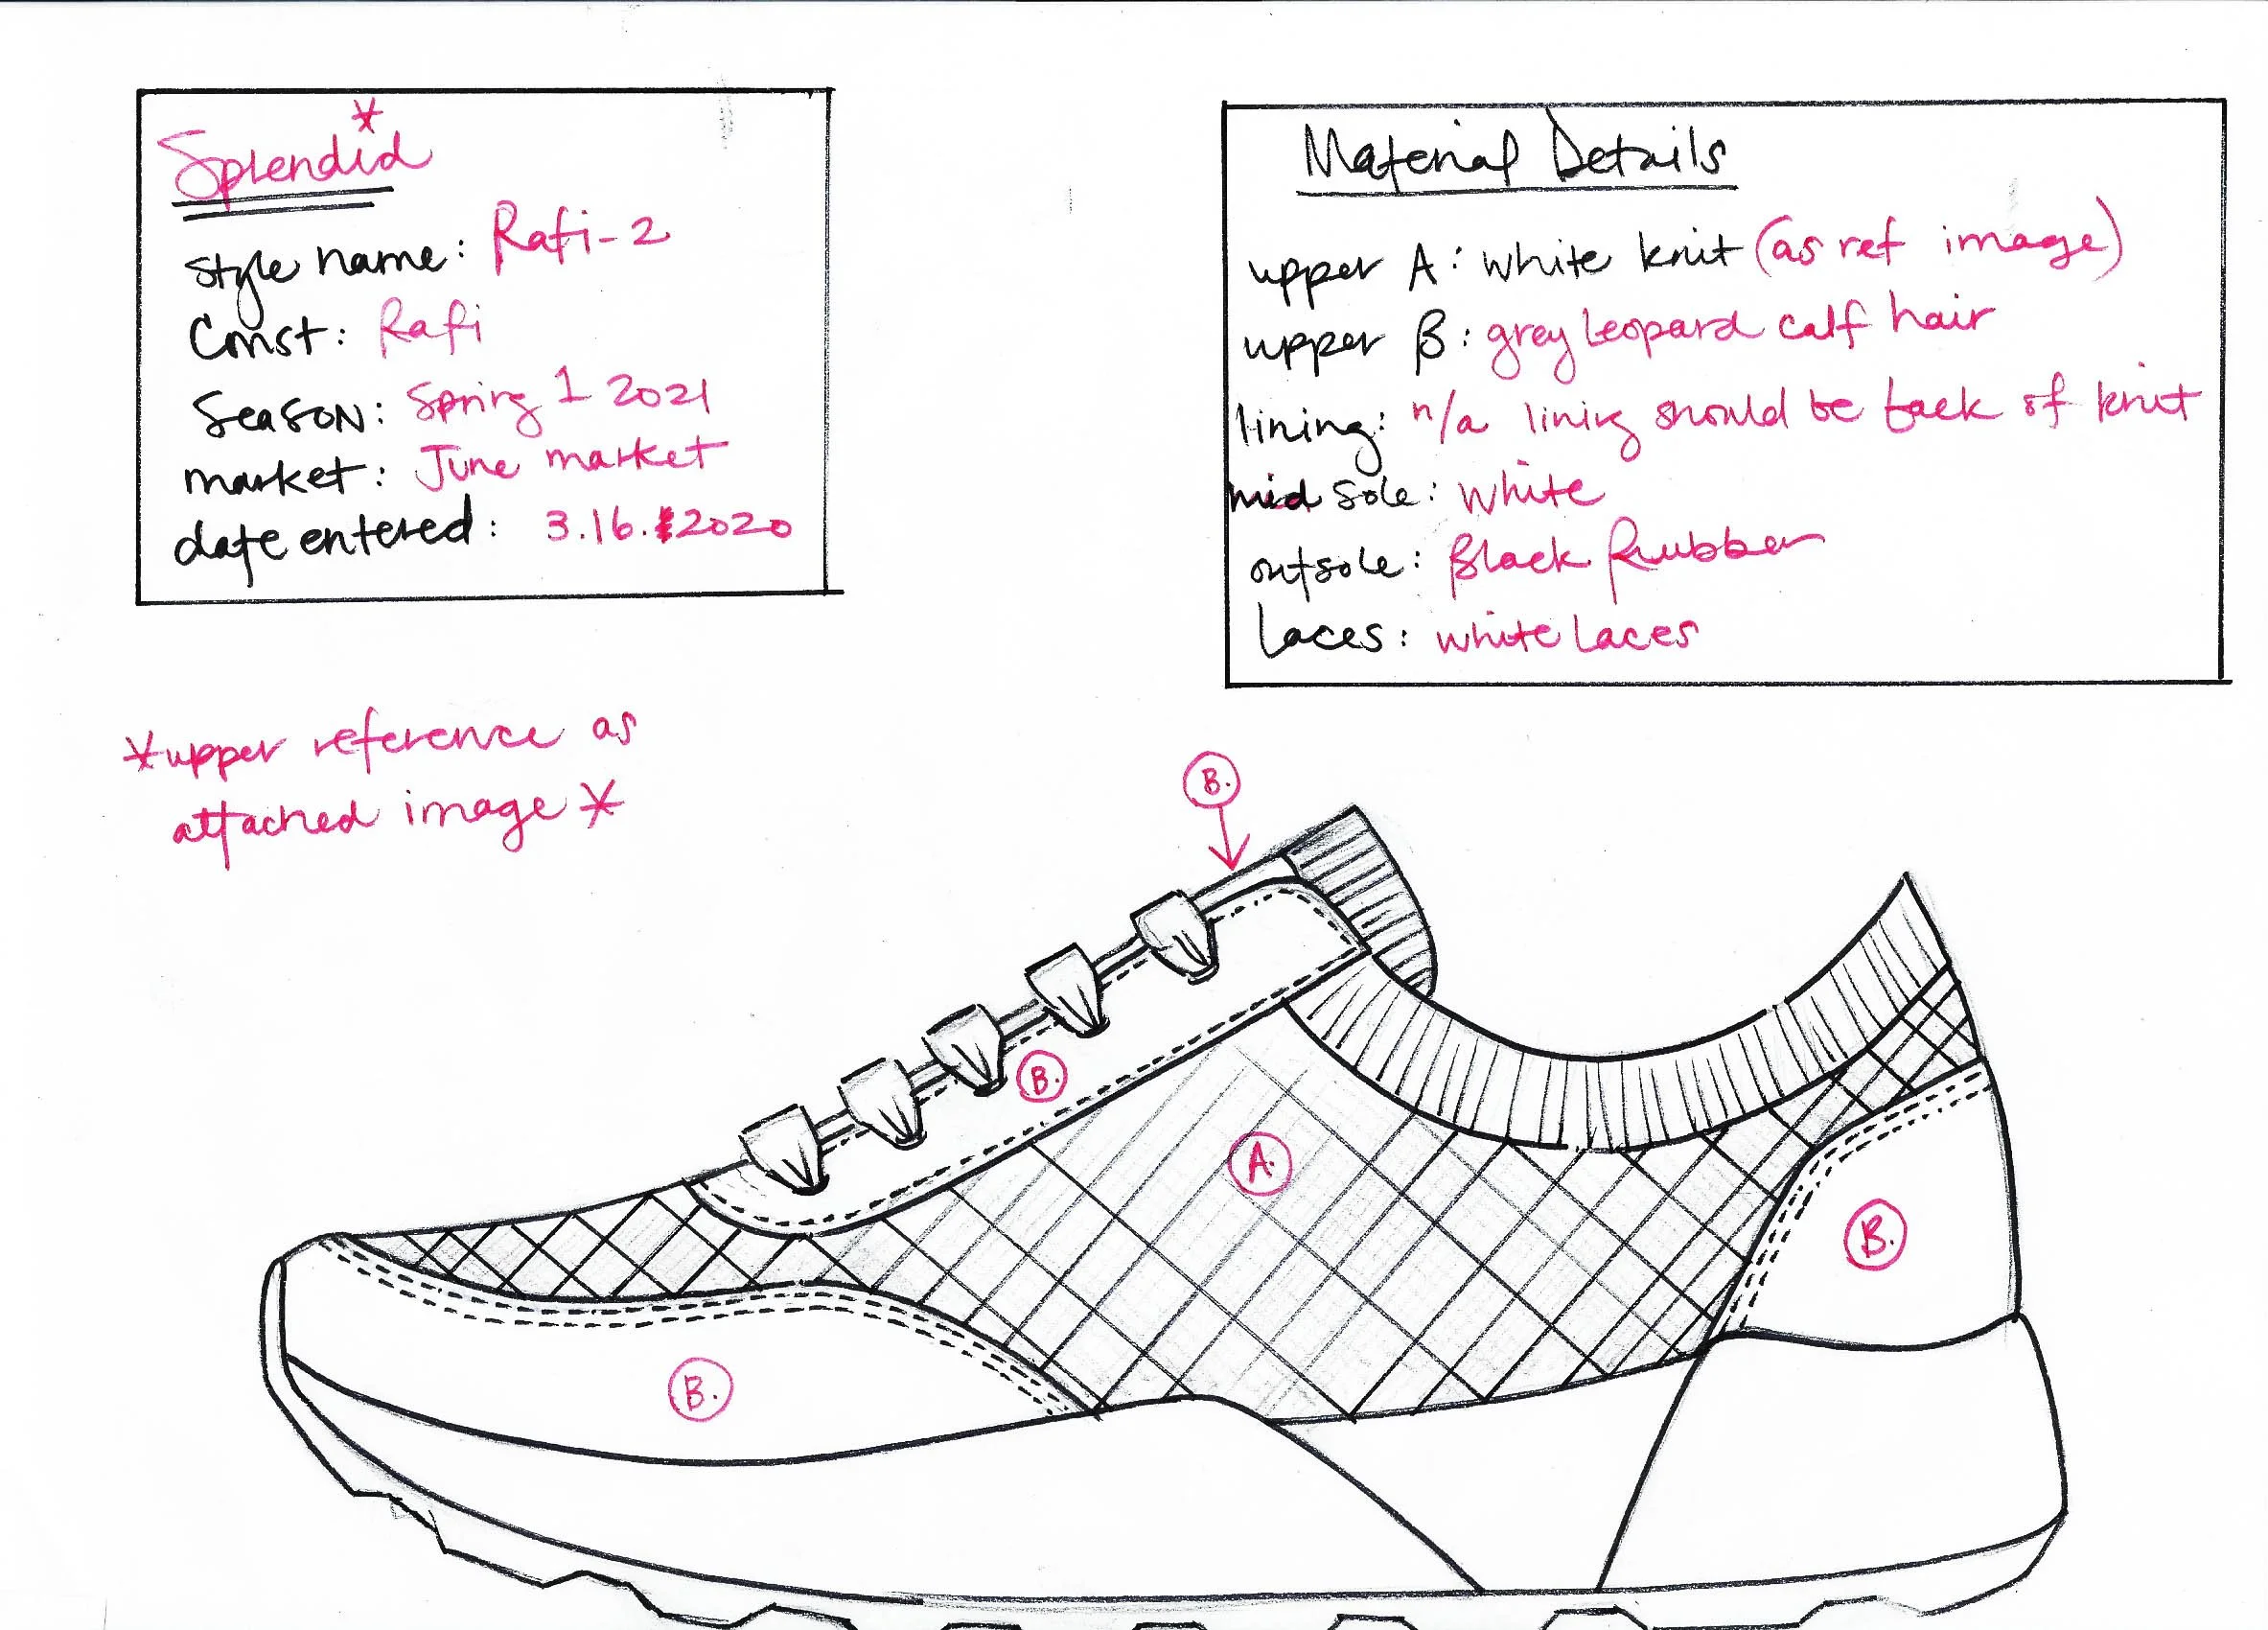 Splendid *
style name: Rafi-2
Const: Rafi
Season: Spring 1 2021
market: June market
date entered: 3.16.2020
Material Details
upper A: white knit (as ref image)
upper B: grey Leopard calf hair
lining: n/a lining should be back of knit
mid sole: white
outsole: Black Rubber
Laces: white Laces
*upper reference as
attached image*
B.
B.
A.
B.
B.